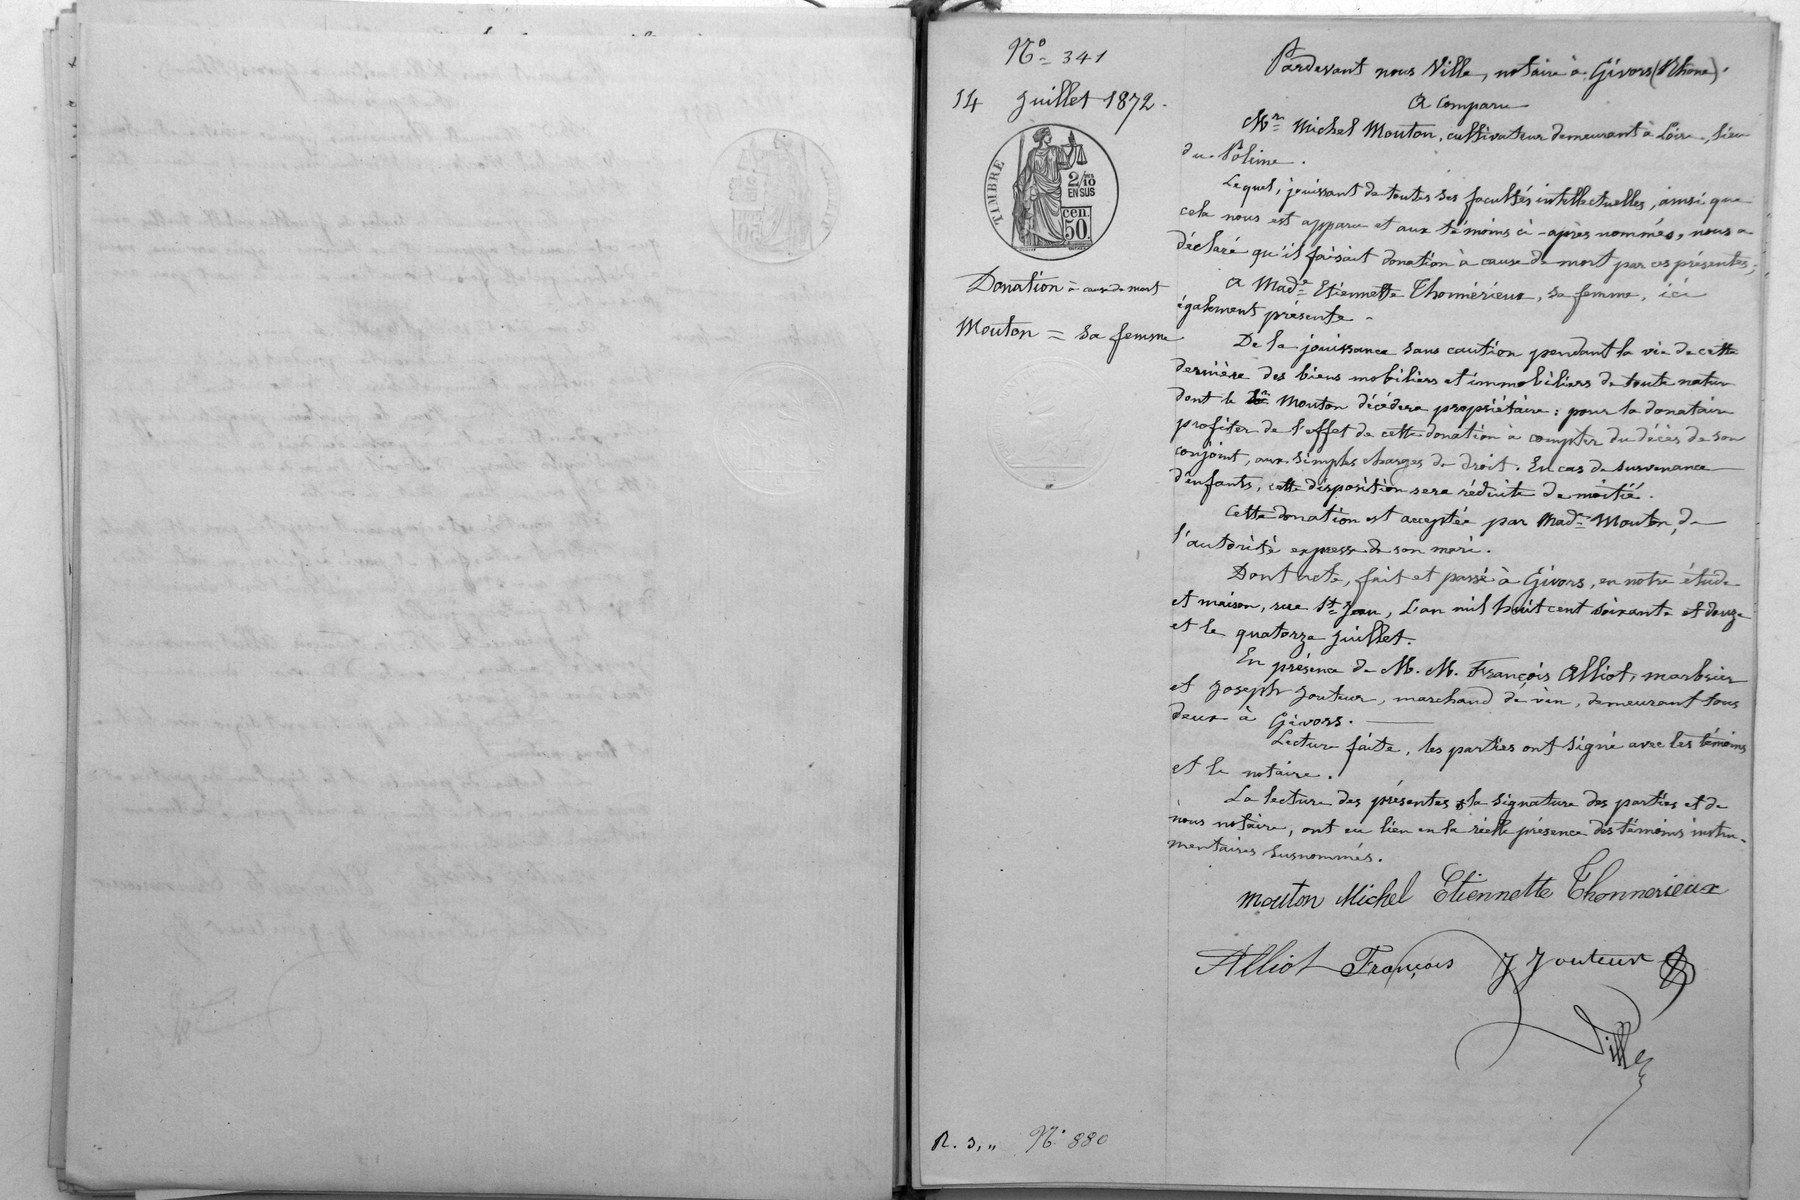 N° 341
14 Juillet 1872.
TIMBRE
2/10
EN SUS
cen.
50.
Donation à cause de mort
Mouton = sa femme
Pardevant nous Ville, notaire à Givors (Rhône).
A comparu
Mr Michel Mouton, cultivateur demeurant à Loire, lieu
du
Lequel, jouissant de toutes ses facultés intellectuelles, ainsi que
cela nous est apparu et aux témoins ci-après nommés, nous a
déclaré qu'il faisait donation à cause de mort par ces présentes;
A Made Etiennette Thomérieux, sa femme, ici
également présente.
De la jouissance sans caution pendant la vie de cette
dernière des biens mobiliers et immobiliers de toute nature
dont le Mouton décédera propriétaire: pour la donataire
profiter de l'effet de cette donation à compter du décès de son
conjoint, aux simples charges de droit. En cas de survenance
d'enfants, cette disposition sera réduite de moitié.
Cette donation est acceptée par Made Mouton, de
l'autorité expresse de son mari.
Dont acte, fait et passé à Givors, en notre étude
et maison, rue St Jean, L'an mil huit cent soixante et douze
et le quatorze juillet.
En présence de M. M. François Alliot, marbrier
et Joseph Jouteur, marchand de vin, demeurant tous
deux à Givors.
Lecture faite, les parties ont signé avec les témoins
et le notaire.
La lecture des présentes & la signature des parties et de
nous notaire, ont eu lieu en la réelle présence des témoins instru-
mentaires susnommés.
Mouton Michel Etiennette Thonnerieux
Alliot François J Jouteur
Ville
R. 3, „ N° 880